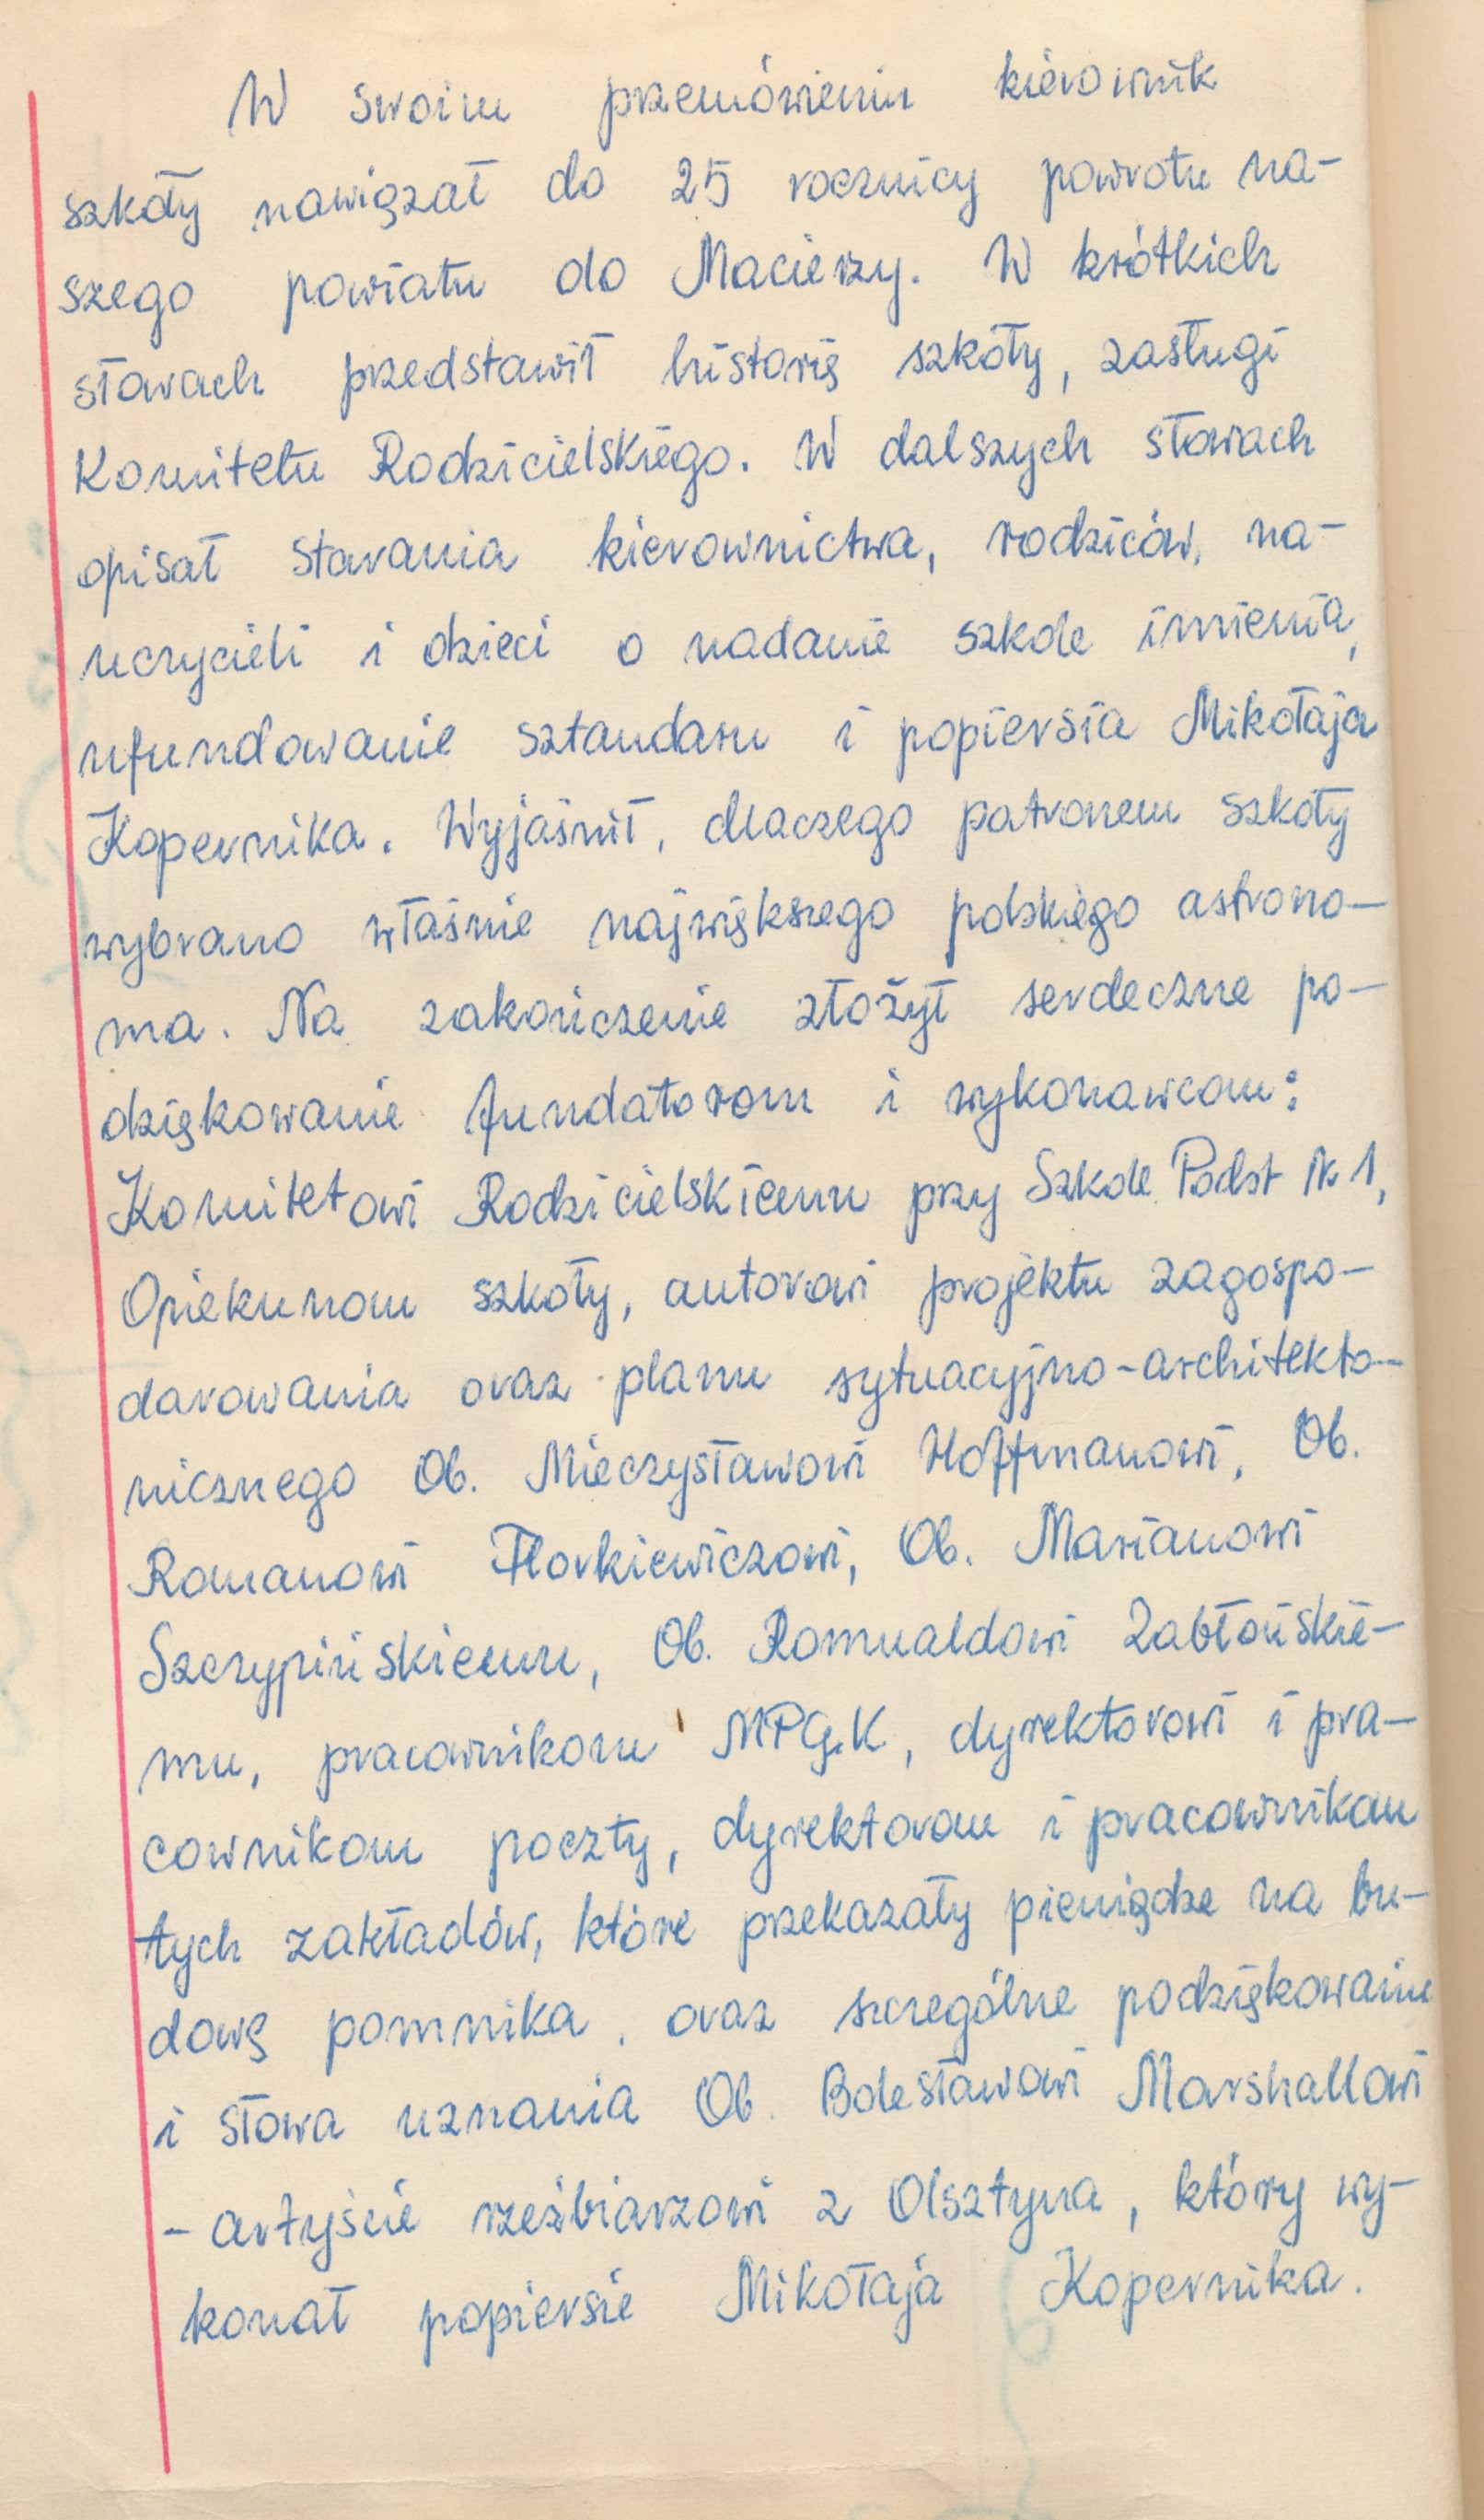 W swoim przemówieniu kierownik
szkoły nawiązał do 25 rocznicy powrotu na-
szego powiatu do Macierzy. W krótkich
słowach przedstawił historię szkoły, zasługi
Komitetu Rodzicielskiego. W dalszych słowach
opisał starania kierownictwa, rodziców, na-
uczycieli i dzieci o nadanie szkole imienia,
ufundowanie sztandaru i popiersia Mikołaja
Kopernika. Wyjaśnił, dlaczego patronem szkoły
wybrano właśnie największego polskiego astrono-
ma. Na zakończenie złożył serdeczne po-
dziękowanie fundatorom i wykonawcom:
Komitetowi Rodzicielskiemu przy Szkole Podst Nr 1,
Opiekunom szkoły, autorowi projektu zagospo-
darowania oraz planu sytuacyjno-architekto-
nicznego Ob. Mieczysławowi Hoffmanowi, Ob.
Romanowi Florkiewiczowi, Ob. Marianowi
Szczypińskiemu, Ob. Romualdowi Zabłońskie-
mu, pracownikom MPGK, dyrektorowi i pra-
cownikom poczty, dyrektorom i pracownikom
tych zakładów, które przekazały pieniądze na bu-
dowę pomnika, oraz szczególne podziękowanie
i słowa uznania Ob. Bolesławowi Marshallowi
- artyście rzeźbiarzowi z Olsztyna, który wy-
konał popiersie Mikołaja Kopernika.